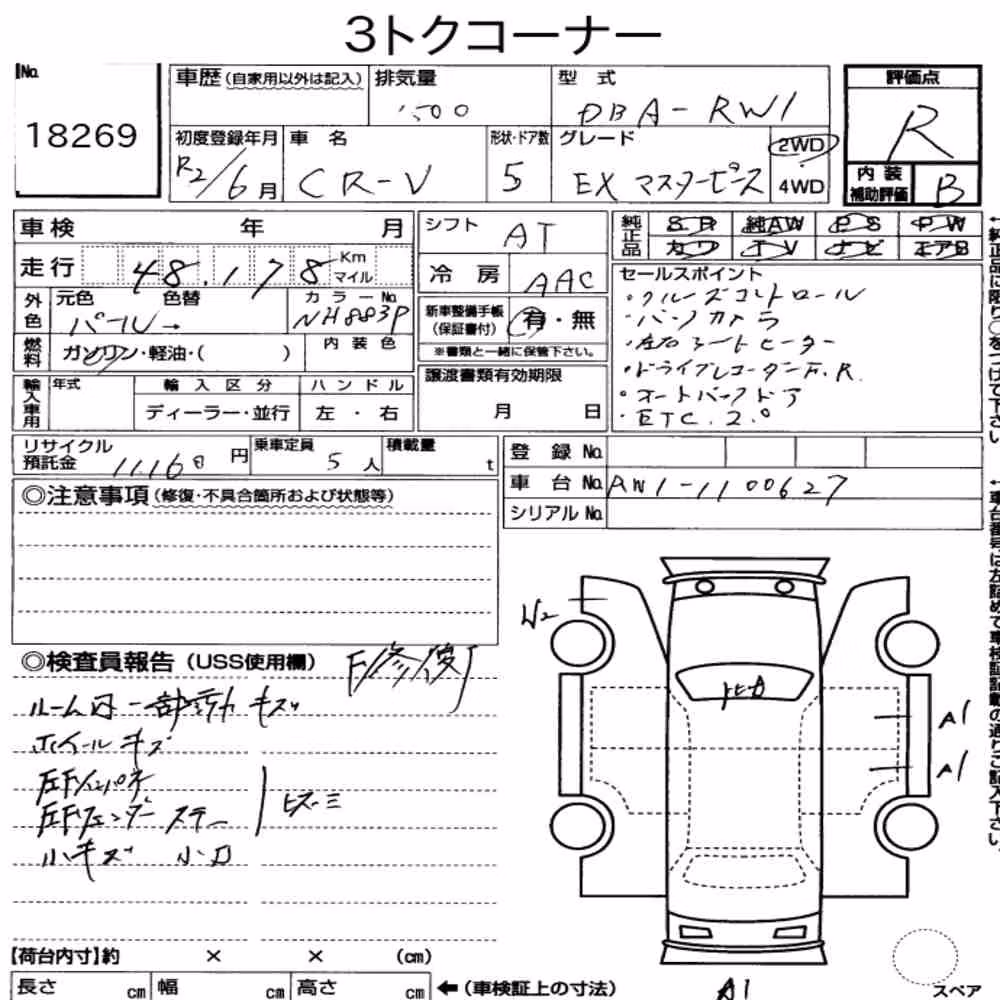 3トクコーナー
No.
18269
車歴(自家用以外は記入)
排気量
1500
型式
DBA-RW1
評価点
R
初度登録年月
R2/6月
車名
CR-V
形状・ドア数
5
グレード
EX マスターピース
2WD
4WD
内装
補助評価
B
車検 年 月
走行
48,178
Km
マイル
外色
元色 色替
パール→
カラーNo.
NH883P
燃料
ガソリン・軽油・( )
内装色
輸入車用
年式
輸入区分
ディーラー・並行
ハンドル
左・右
シフト
AT
冷房
AAC
新車整備手帳
(保証書付)
有・無
※書類と一緒に保管下さい。
譲渡書類有効期限
月 日
純正品
SR 純AW PS PW
カワ TV ナビ エアB
セールスポイント
・クルーズコントロール
・バックカメラ
・左右シートヒーター
・ドライブレコーダーF.R.
・オートバックドア
・ETC.2.0
←純正品に限り○をつけて下さい
リサイクル
預託金
11160円
乗車定員
5人
積載量
t
登録No.
車台No.
RW1-1100627
シリアルNo.
←車台番号は左詰めで車検証記載の通りご記入下さい。
◎注意事項(修復・不具合箇所および状態等)
◎検査員報告(USS使用欄)
「修復」
ルーム内一部汚れ キズ
ホイールキズ
左Fインパネ
左Fフェンダーステー
ヒズミ
小キズ 小凹
W2
トビA
A1
A1
A1
【荷台内寸】約 × × (cm)
長さ cm 幅 cm 高さ cm
←(車検証上の寸法)
スペア